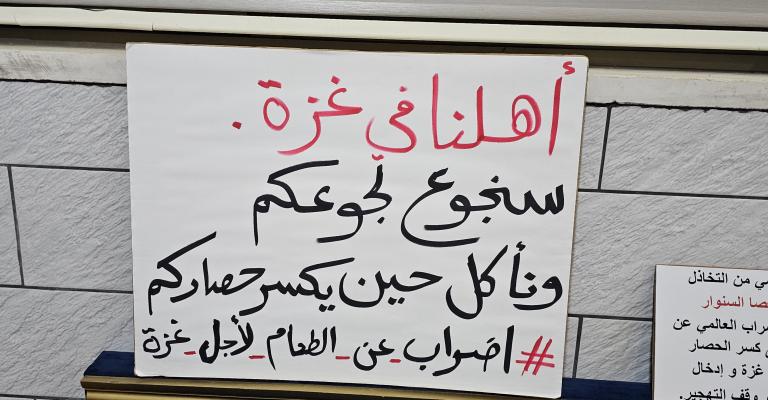 أهلنا في غزة .
سنجوع لجوعكم
ونأكل حين يكسر حصاركم
#اضراب_عن_الطعام_لأجل_غزة
ي من التخاذل
صا السنوار
راب العالمي عن
كسر الحصار
غزة و إدخال
وقف التهجير.